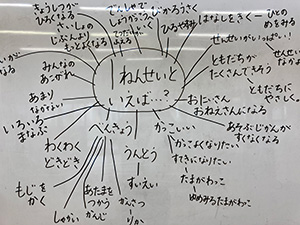 きょうしつが
ひろくなる
せいしょの
じぶんより
もっとよくなる
でんしゃで
しょうがっこうへ
ひるやすみ
はなしをきく
ひとの
めをみる
せんせいがいっぱい
ともだちが
たくさんできそう
みんなの
あこがれ
1ねんせいと
いえば…?
おにいさん
おねえさんになる
ともだちに
やさしく
あまり
なかない
いろいろ
まなぶ
べんきょう
かっこいい
あそぶじかんが
すくなくなる
わくわく
どきどき
うんどう
かっこよくなりたい
すきになりたい
もじを
かく
すいえい
たまがわっこ
ゆめみるたまがわっこ
あたまを
つかう
かんじ
かんさつ
りか
しゃかい